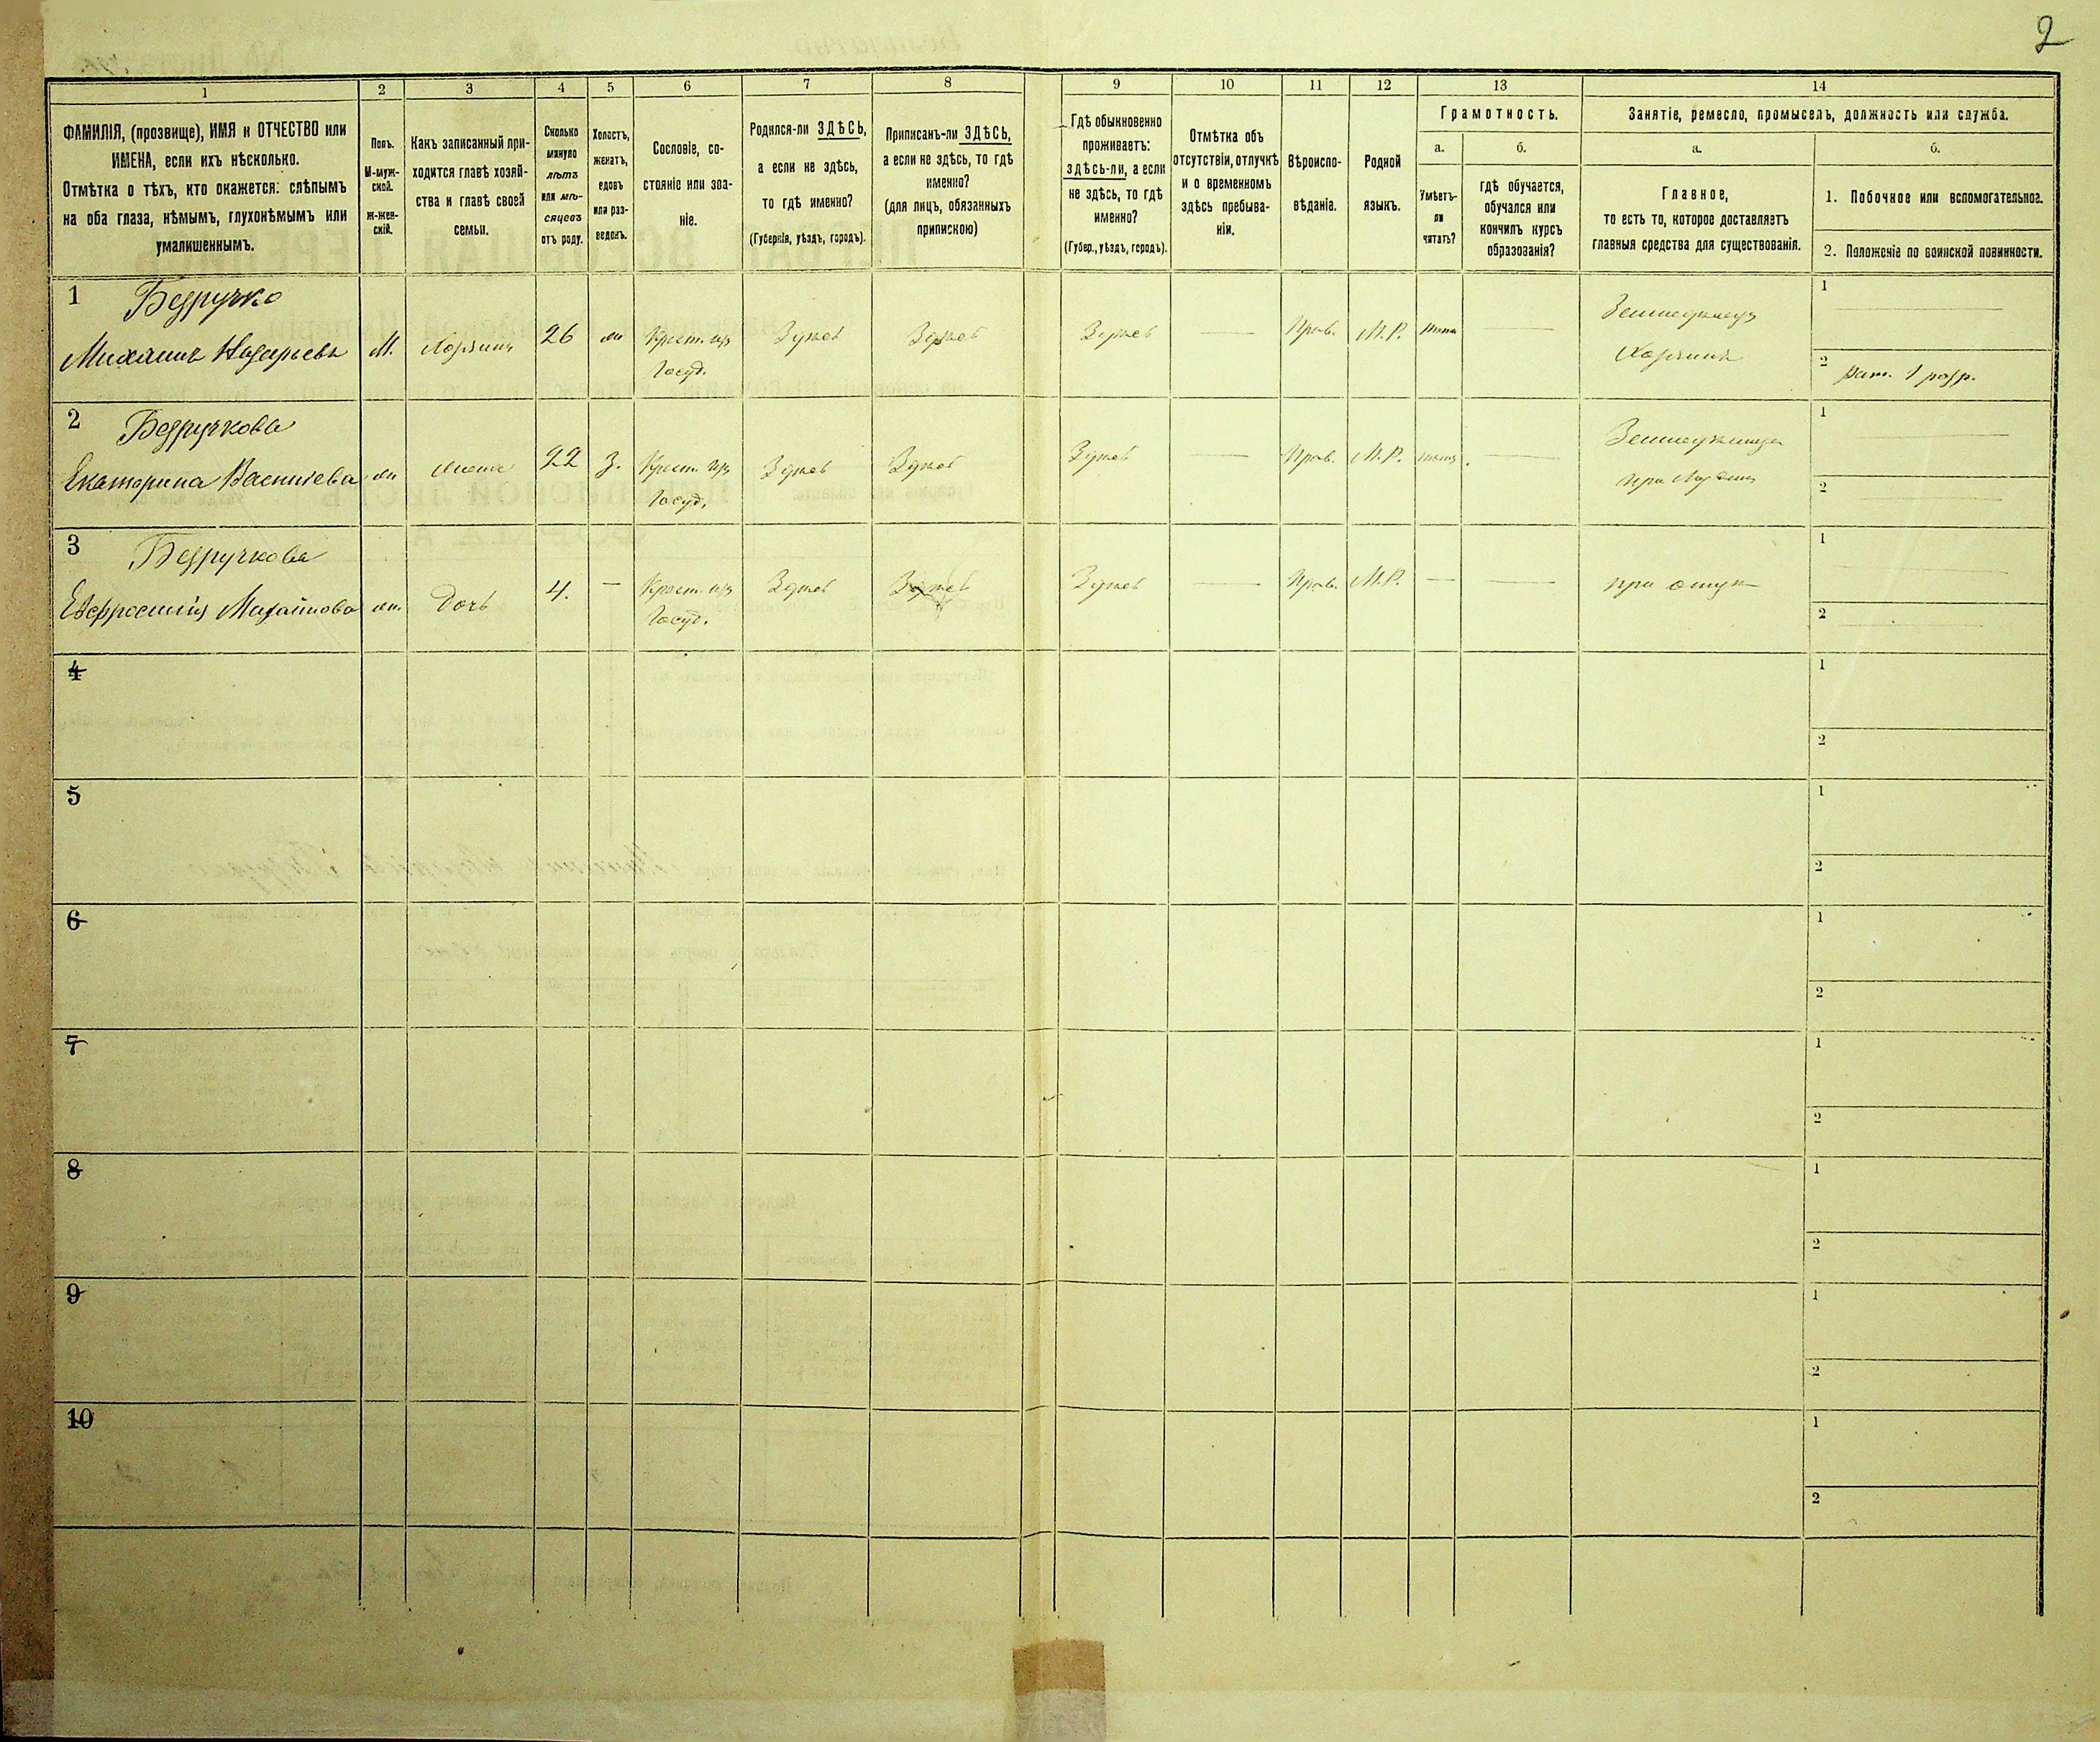 2
1
2
3
4
5
6
7
8
9
10
11
12
13
14
ФАМИЛІЯ, (прозвище), ИМЯ и ОТЧЕСТВО или
ИМЕНА, если ихъ нѣсколько.
Отмѣтка о тѣхъ, кто окажется: слѣпымъ
на оба глаза, нѣмымъ, глухонѣмымъ или
умалишеннымъ.
Полъ.
М-муж-
ской.
Ж-жен-
скій.
Какъ записанный при-
ходится главѣ хозяй-
ства и главѣ своей
семьи.
Сколько
минуло
лѣтъ
или мѣ-
сяцевъ
отъ роду.
Холостъ,
женатъ,
вдовъ
или раз-
веденъ.
Сословіе, со-
стояніе или зва-
ніе.
Родился-ли ЗДѢСЬ,
а если не здѣсь,
то гдѣ именно?
(Губернія, уѣздъ, городъ).
Приписанъ-ли ЗДѢСЬ,
а если не здѣсь, то гдѣ
именно?
(для лицъ, обязанныхъ
припискою)
Гдѣ обыкновенно
проживаетъ:
здѣсь-ли, а если
не здѣсь, то гдѣ
именно?
(Губер., уѣздъ, городъ).
Отмѣтка объ
отсутствіи, отлучкѣ
и о временномъ
здѣсь пребыва-
ніи.
Вѣроиспо-
вѣданіе.
Родной
языкъ.
Грамотность.
а.
Умѣетъ-
ли
читать?
б.
гдѣ обучается,
обучался или
кончилъ курсъ
образованія?
Занятіе, ремесло, промыселъ, должность или служба.
а.
Главное,
то есть то, которое доставляетъ
главныя средства для существованія.
б.
1. Побочное или вспомогательное.
2. Положеніе по воинской повинности.
1
Михаилъ Назарьевъ
М.
Хозяинъ
26
ж
Крест. изъ
Госуд.
Здѣсь
Здѣсь
Здѣсь
—
Прав.
М.Р.
—
Земледѣлецъ
Хозяинъ
1
2
Рат. 1 разр.
2
Екатерина Васильева
ж
Жена
22
З.
Крест. изъ
Госуд.
Здѣсь
Здѣсь
Здѣсь
—
Прав.
М.Р.
—
1
2
3
Евфросинія Михайлова
ж.
Дочь
4.
—
Крест. изъ
Госуд.
Здѣсь
Здѣсь
Здѣсь
—
Прав.
М.Р.
—
—
при отцѣ
1
2
4
1
2
5
1
2
6
1
2
7
1
2
8
1
2
9
1
2
10
1
2